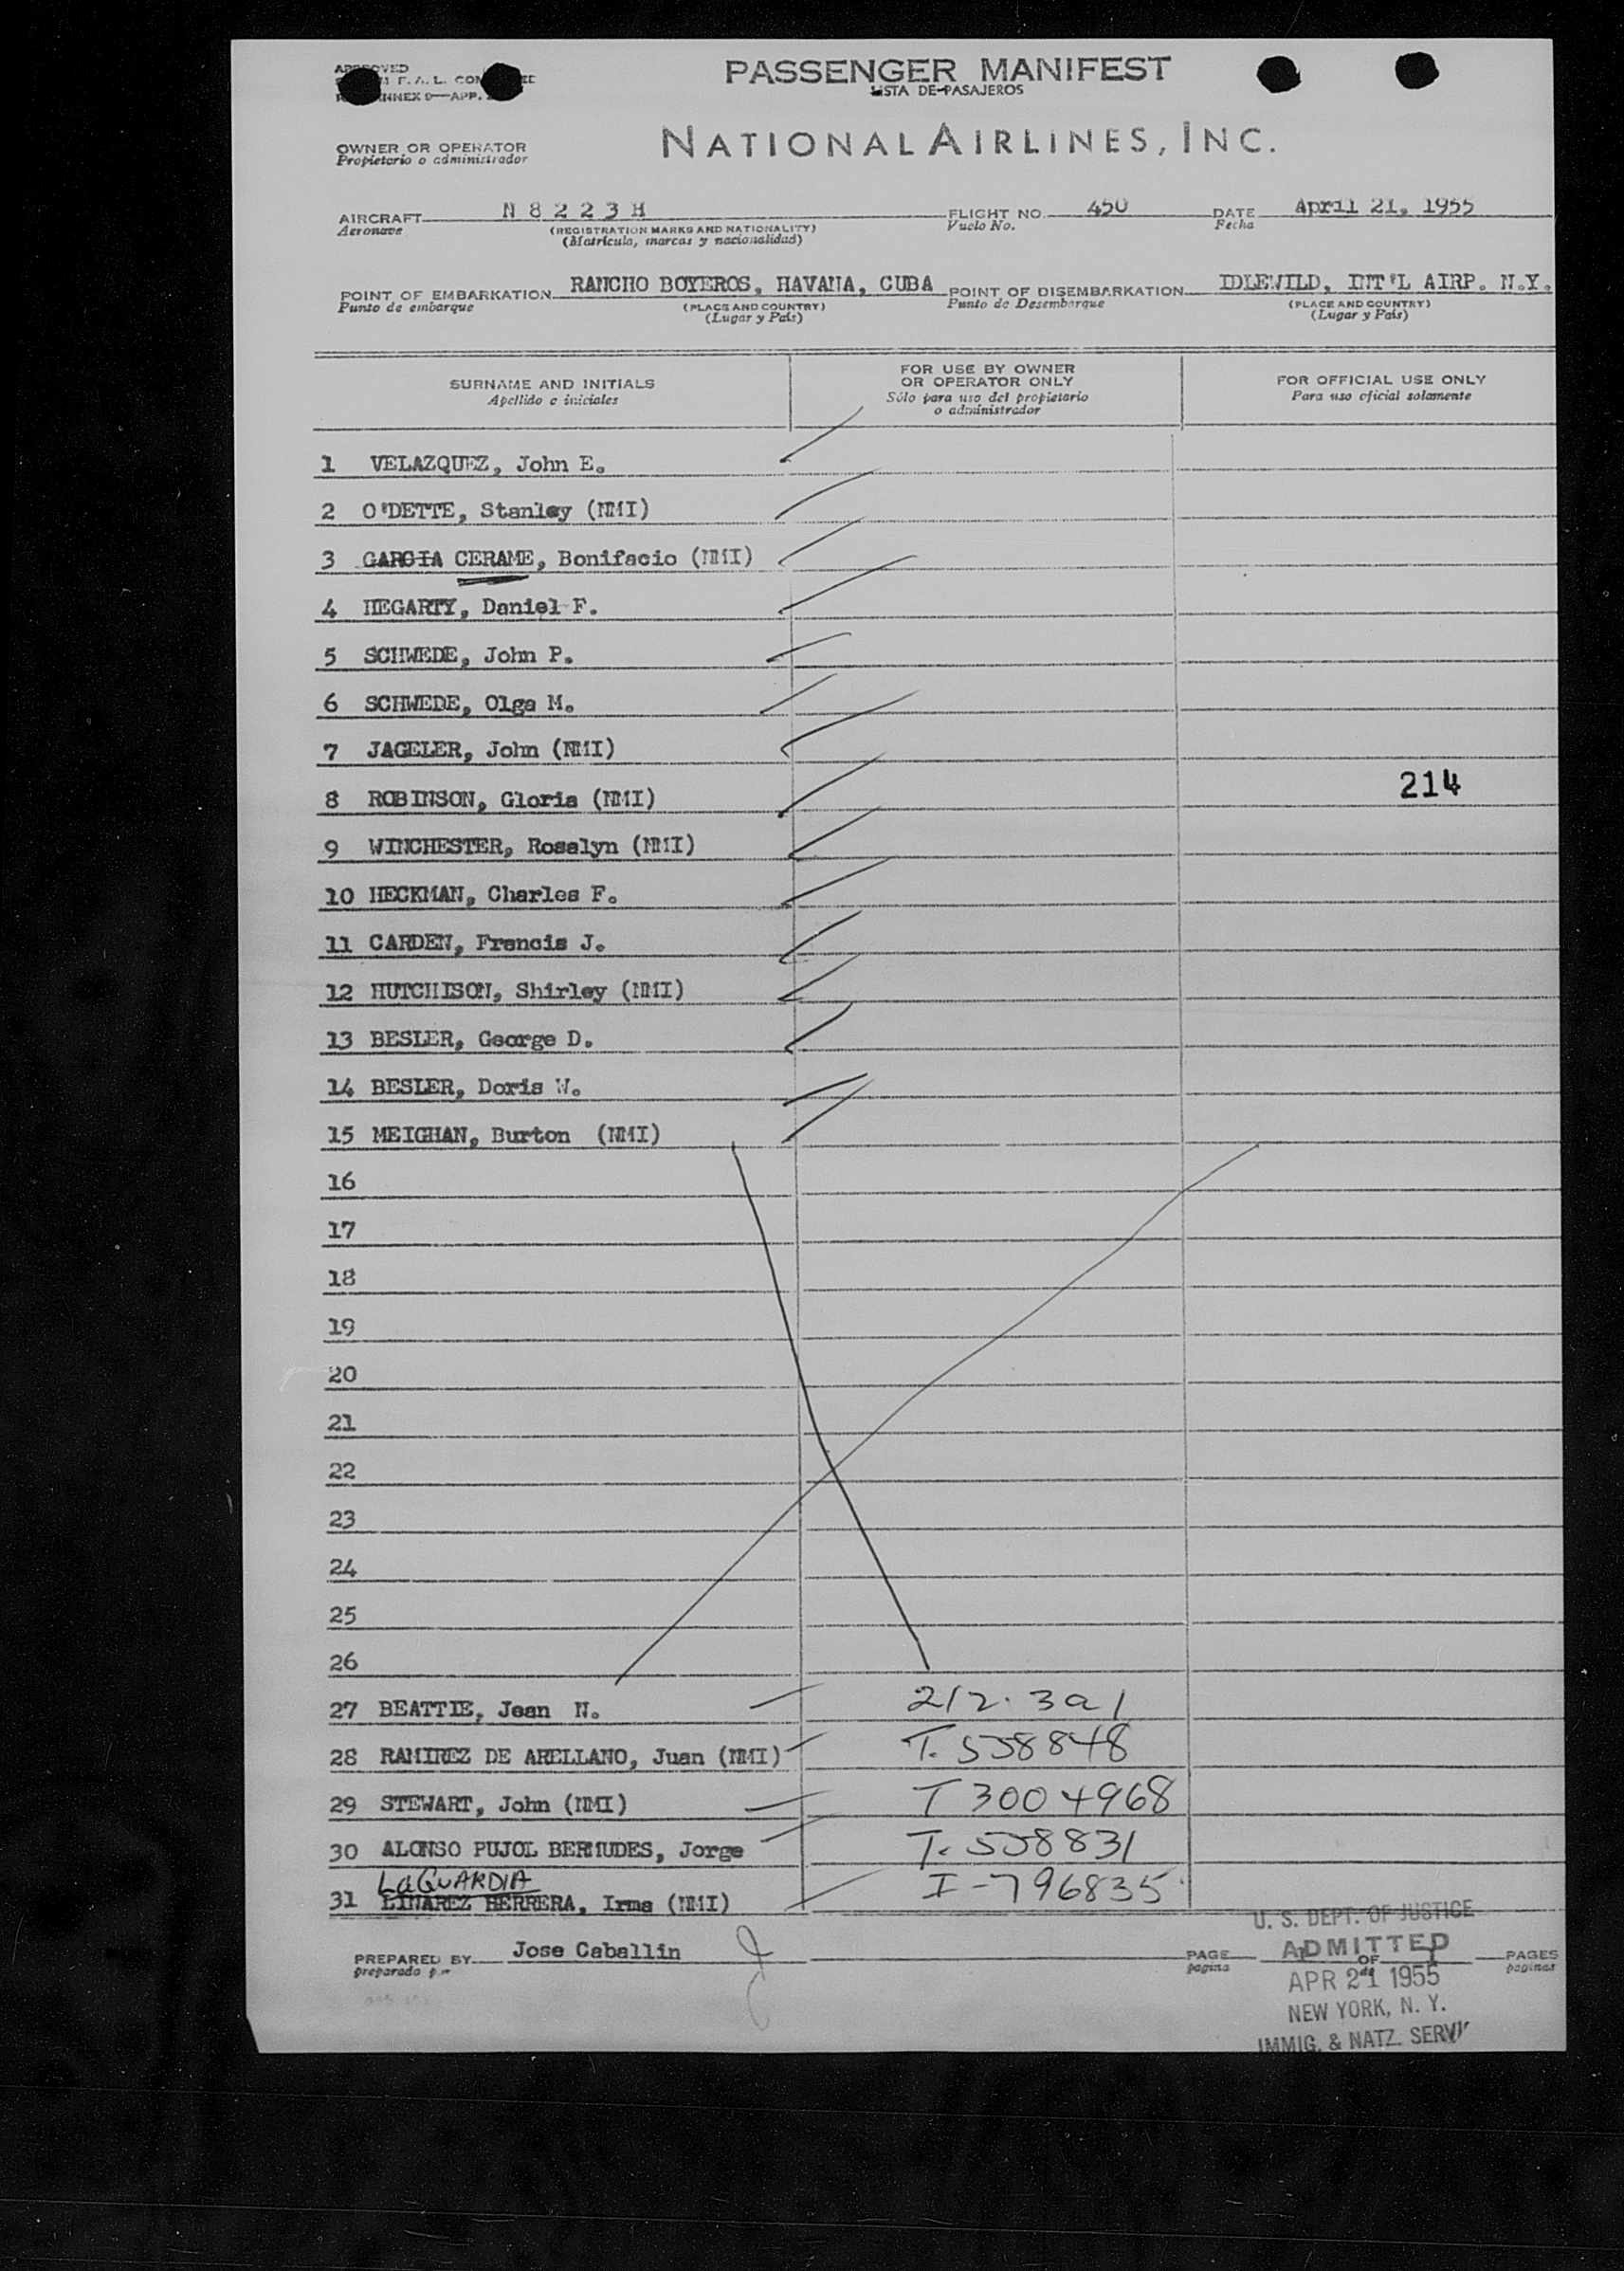 PASSENGER MANIFEST
LISTA DE PASAJEROS
OWNER OR OPERATOR
Propietario o administrador
NATIONAL AIRLINES, INC.
AIRCRAFT N 8 2 2 3 H FLIGHT NO. 450 DATE April 21, 1955
Aeronave (REGISTRATION MARKS AND NATIONALITY) Vuelo No. Fecha
(Matricula, marcas y nacionalidad)
POINT OF EMBARKATION RANCHO BOYEROS, HAVANA, CUBA POINT OF DISEMBARKATION IDLEWILD, INT'L AIRP. N.Y.
Punto de embarque (PLACE AND COUNTRY) Punto de Desembarque (PLACE AND COUNTRY)
(Lugar y País) (Lugar y País)
SURNAME AND INITIALS
Apellido e iniciales
FOR USE BY OWNER
OR OPERATOR ONLY
Sólo para uso del propietario
o administrador
FOR OFFICIAL USE ONLY
Para uso oficial solamente
1 VELAZQUEZ, John E.
2 O'DETTE, Stanley (NMI)
3 GARCIA CERAME, Bonifacio (NMI)
4 HEGARTY, Daniel F.
5 SCHWEDE, John P.
6 SCHWEDE, Olga M.
7 JAGELER, John (NMI)
8 ROBINSON, Gloria (NMI) 214
9 WINCHESTER, Rosalyn (NMI)
10 HECKMAN, Charles F.
11 CARDEN, Francis J.
12 HUTCHISON, Shirley (NMI)
13 BESLER, George D.
14 BESLER, Doris W.
15 MEIGHAN, Burton (NMI)
16
17
18
19
20
21
22
23
24
25
26
27 BEATTIE, Jean N. 212.3a1
28 RAMIREZ DE ARELLANO, Juan (NMI) T. 558848
29 STEWART, John (NMI) T 3004968
30 ALONSO PUJOL BERMUDES, Jorge T. 558831
LaGUARDIA
31 LINAREZ HERRERA, Irma (NMI) I-796835
U. S. DEPT. OF JUSTICE
PREPARED BY Jose Caballin PAGE 1 OF 1 PAGES
preparado por pagina paginas
ADMITTED
APR 21 1955
NEW YORK, N. Y.
IMMIG. & NATZ. SERV